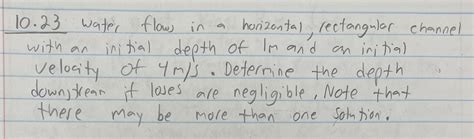 10.23 Water flows in a horizontal, rectangular channel
with an initial depth of 1m and an initial
velocity of 4m/s. Determine the depth
downstream if loses are negligible, Note that
there may be more than one solution.